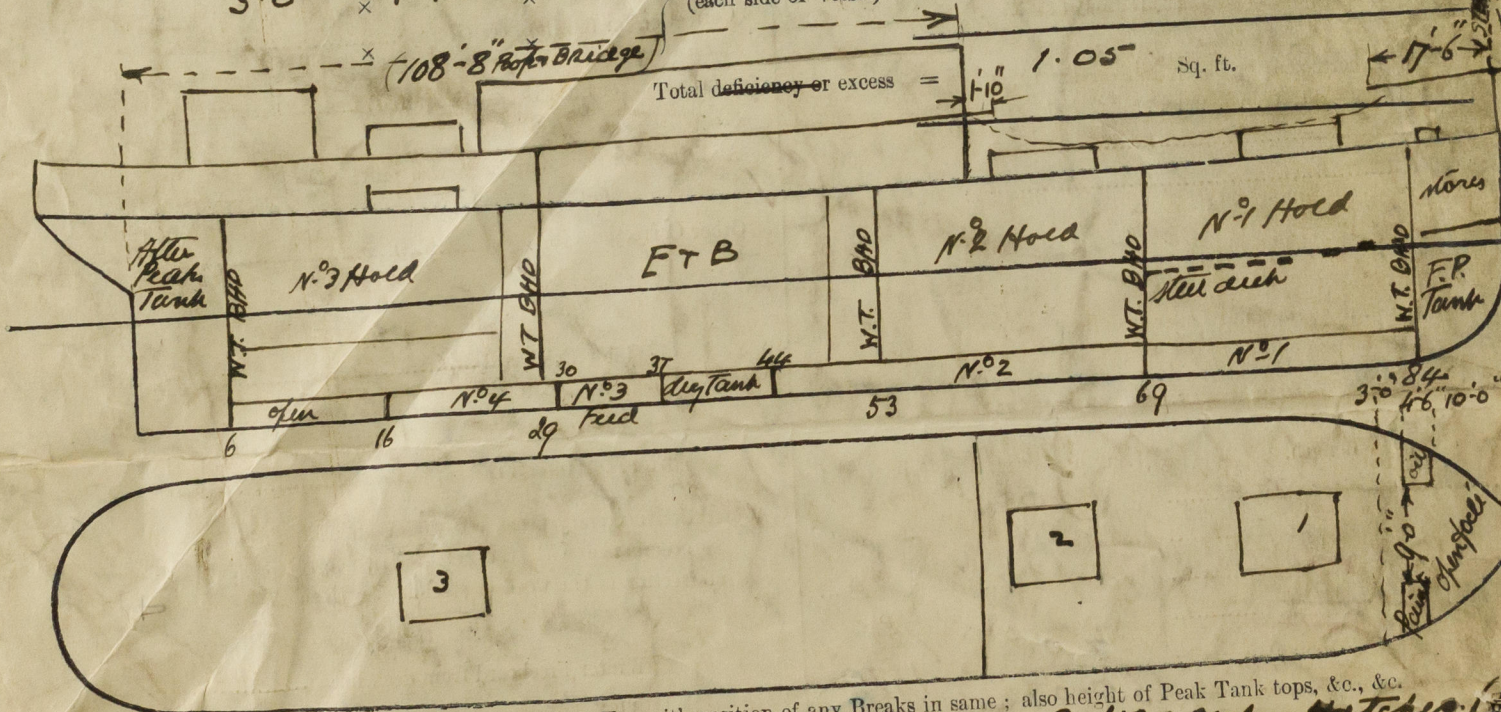 (each side of
(108'-8" Poop & Bridge)
Total deficiency or excess =
1'-10"
1.05
Sq. ft.
17'-6"
After Peak Tank
W.T. BHD
No. 3 Hold
WT BHD
E + B
W.T. BHD
No. 2 Hold
W.T. BHD
No. 1 Hold
steel deck
W.T. BHD
stores
F.P. Tank
open
No. 4
30
No. 3
Feed
37
dry Tank
44
No. 2
No. 1
6
16
29
53
69
84
3'.0"
4'6"
10'-0"
3
2
1
oil
9'-0"
Paint
open focle
position of any Breaks in same ; also height of Peak Tank tops, &c., &c.